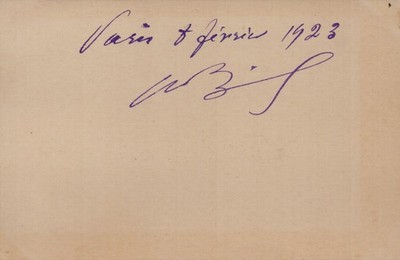 Paris 8 février 1923